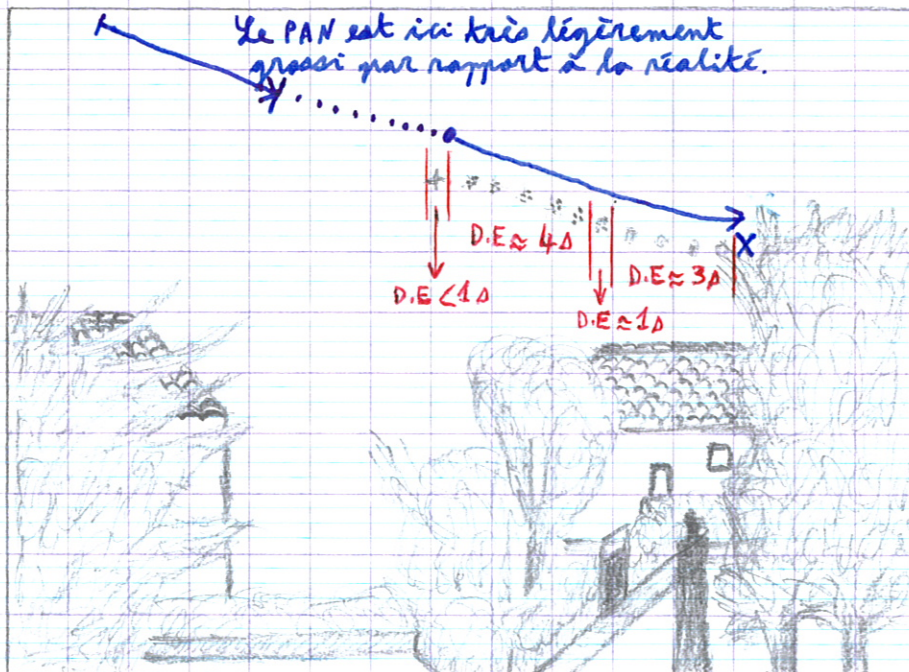 Le PAN est ici très légèrement
grossi par rapport à la réalité.
Y
D.E ≈ 4s
X
D.E < 1s
D.E ≈ 3s
D.E ≃ 1s